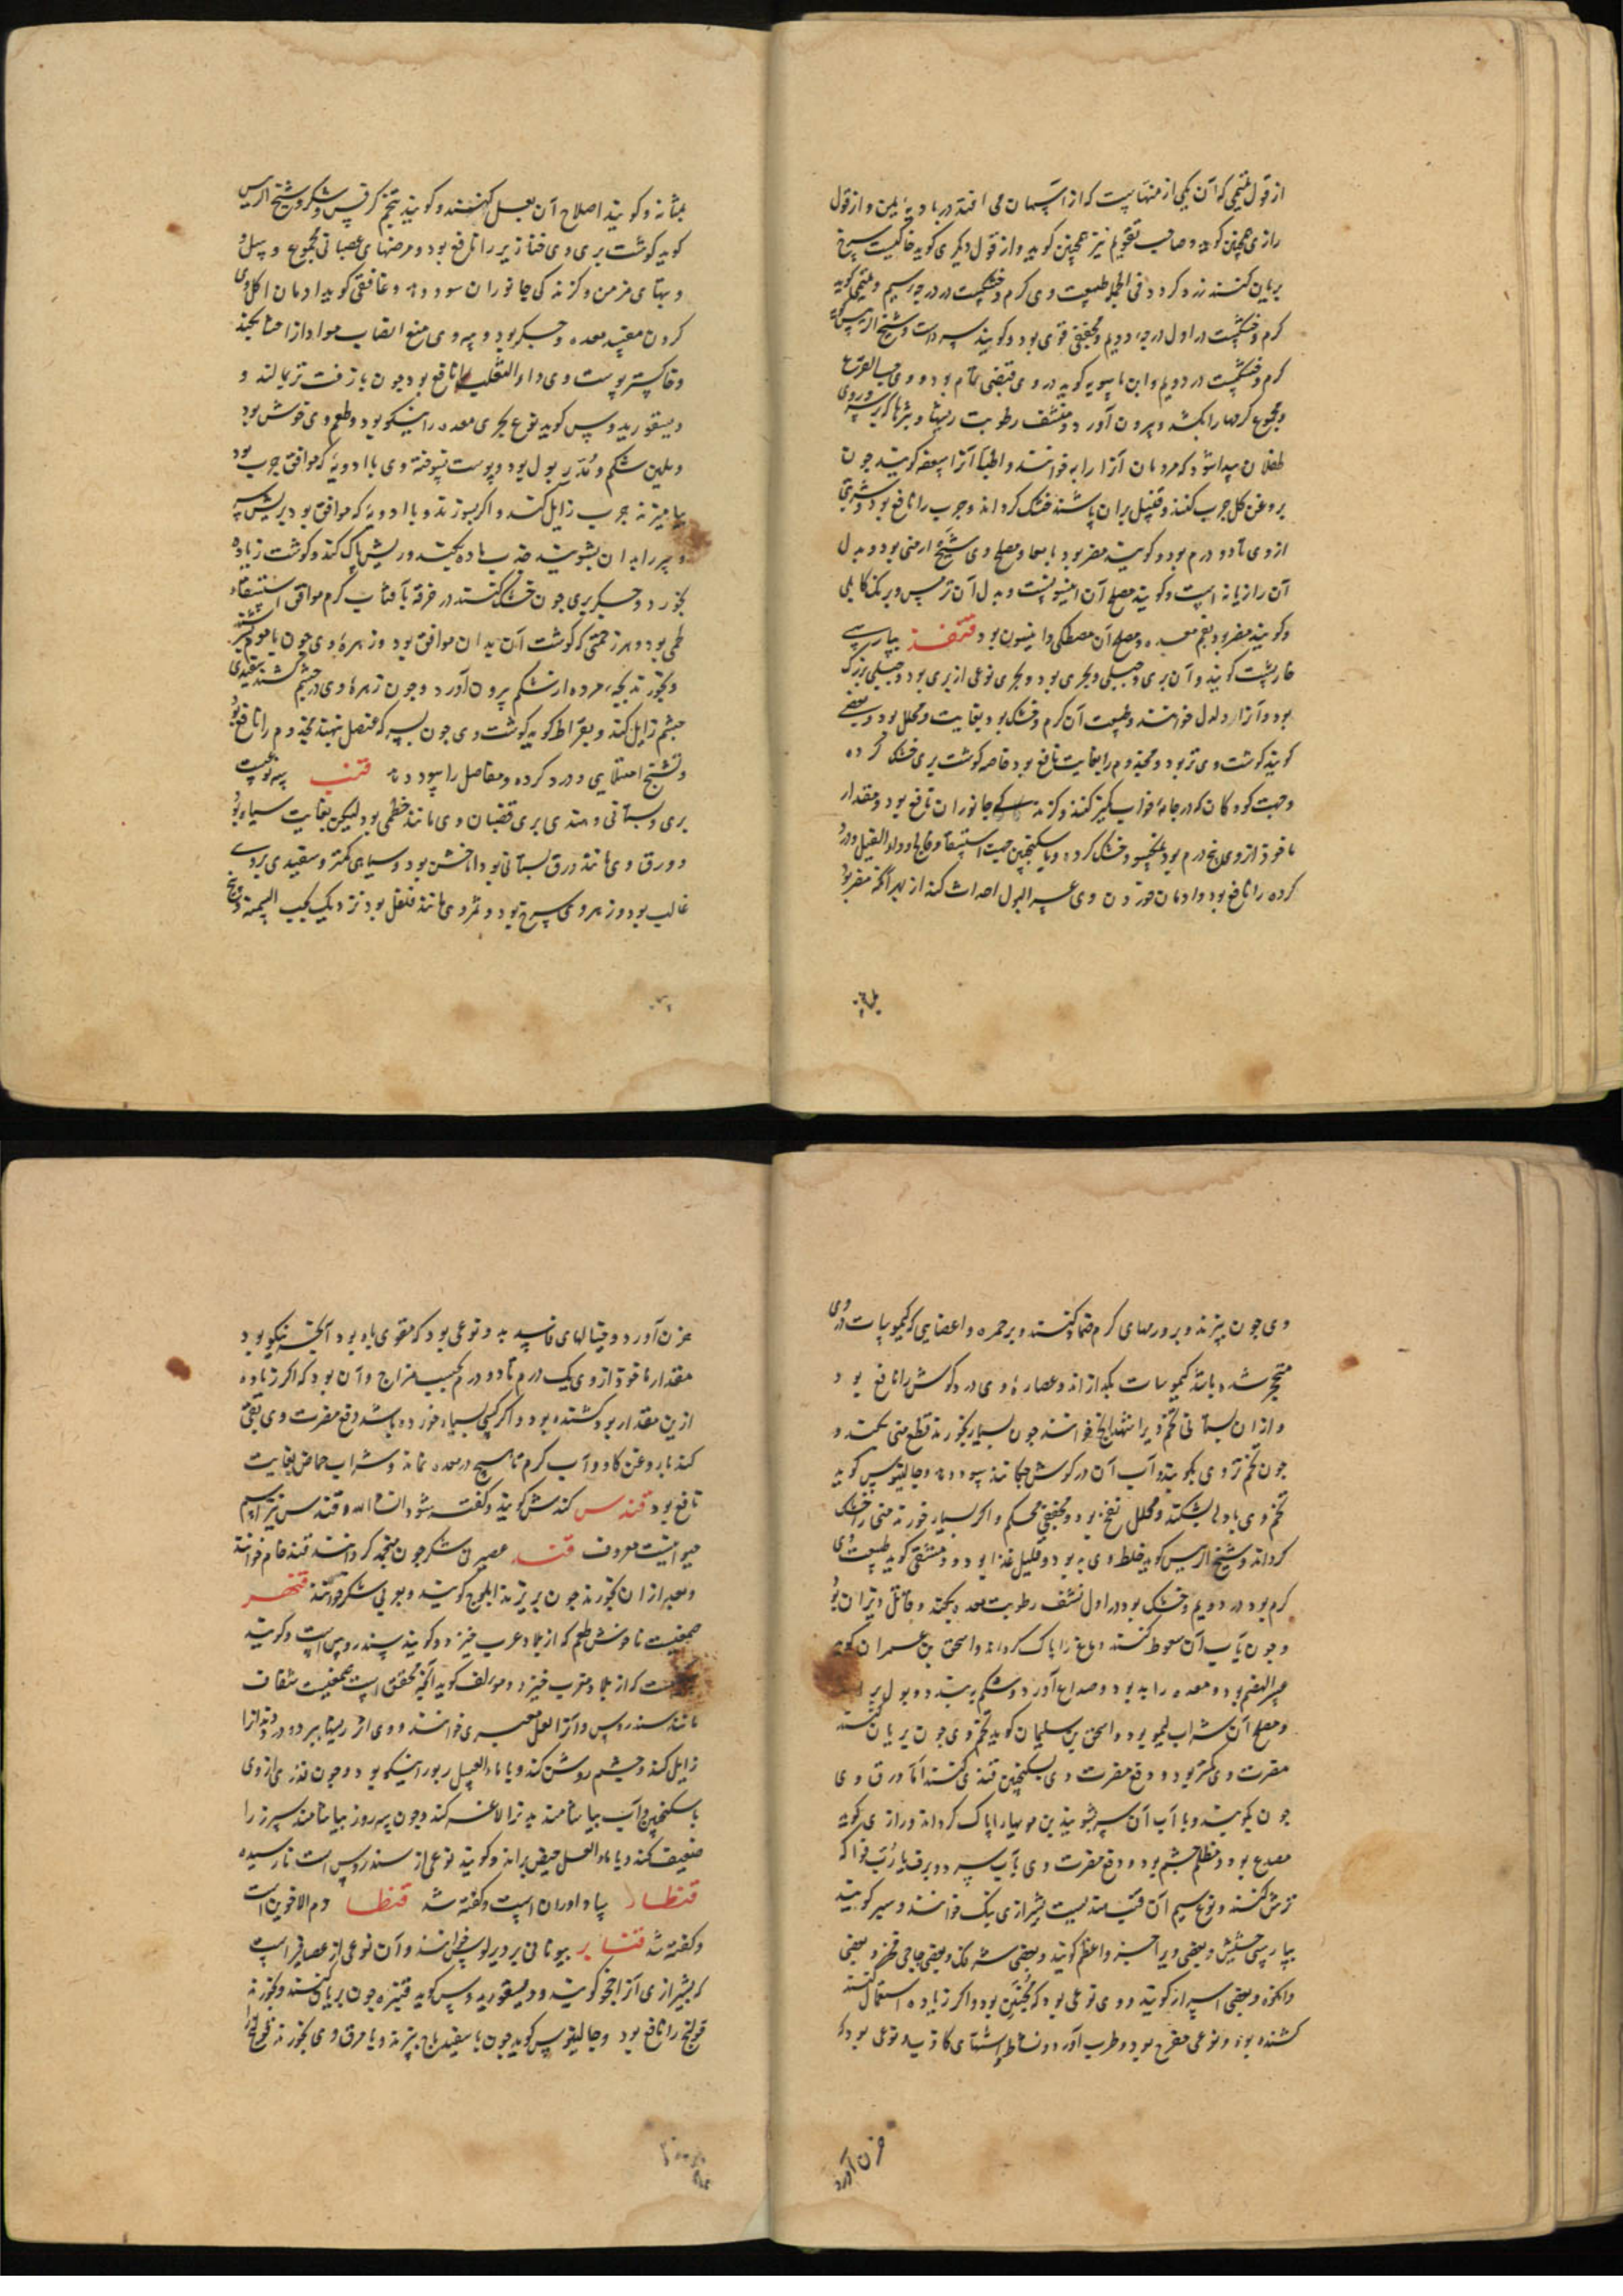 از قول تمیمی که آن یکی از منهاست که از آسمان می افتد در بادیه یمن و از قول
رازی همچنین گوید و صاحب تقویم نیز همچنین گوید و از قول دیگری گوید خاکیست سرخ
بریان کنند زرد گردد فی الجمله طبیعت وی گرم و خشکست در درجه سیم و تمیمی گوید
گرم و خشکست در اول درجه دویم و مجففی قوی بود و گویند سردست و شیخ الرئیس گوید
گرم و خشکست در دویم و ابن ماسویه گوید در وی قبضی تمام بود و وی حب القرع
و مجموع کرمها را بکشد و بیرون آورد و منشف رطوبت ریشها و بثرها که بر سر و روی
طفلان پیدا شود که مردمان آنرا رابه خوانند و اطبا آنرا سعفه گویند چون
بروغن گل چرب کنند و قنبیل بران پاشند خشک گرداند و جرب را نافع بود و شربتی
از وی تا دو درم بود و گویند مضر بود بامعا و مصلح وی شیح ارمنی بود و بدل
آن رازیانه است و گویند مصلح آن انیسونست و بدل آن ترمس و برنک کابلی
و گویند مضر بود بفم معده و مصلح آن مصطکی و انیسون بود قنفذ بپارسی
خارپشت گویند و آن بری و جبلی و بحری بود و بحری نوعی از بری بود و جبلی بزرگ
بود و آنرا دلدل خوانند و طبیعت آن گرم و خشک بود بغایت و محلل بود و بعضی
گویند گوشت وی تر بود و مجذوم را بغایت نافع بود خاصه گوشت بری خشک کرده
و جهت کودکان که در جامه خواب کمیز کنند و گزندگی جانوران نافع بود و مقدار
ماخوذ از وی پنج درم بود نمکسود خشک کرده و با سکنجبین جهت استسقا و فالج و داء الفیل و درد
گرده را نافع بود و ادمان خوردن وی عسر البول احداث کند از بهر آنکه مضر بود
بمثانه و گویند اصلاح آن بعسل کنند و گویند بتخم کرفس و شکر و شیخ الرئیس
گوید گوشت بری وی خنازیر را نافع بود و مرضهای عصبانی مجموع و سل و
و تبهای مزمن و گزندگی جانوران سود دهد و غافقی گوید ادمان اکل وی
کردن مفید معده و جگر بود و پیه وی منع انصاب مواد از احشا بکند
و خاکستر پوست وی داء الثعلب را نافع بود چون با زفت تر بمالند و
دیسقوریدوس گوید نوع بحری معده را نیکو بود و طعم وی خوش بود
و ملین شکم و مدر بول بود و پوست سوخته وی با ادویه که موافق جرب بود
بیامیزند جرب زایل کند و اگر بسوزند و با ادویه که موافق بود بریش سر
و سر را بدان بشویند جذب ماده بکند و ریش پاک کند و گوشت زیاده
بخورد و جگر بری چون خشک کنند در خرقه بآفتاب گرم موافق استسقاء
لحمی بود و هر زحمتی که گوشت آن بدان موافق بود و زهره وی چون با موم بسرشند
و بخورند بچه مرده از شکم بیرون آورد و چون زهره وی در چشم کشند سفیدی
چشم زایل کند و بقراط گوید گوشت وی چون بسرکه عنصل بپزند مجذوم را نافع بود
و تشنج امتلایی و درد گرده و مفاصل را سود دهد قنب سه نوعست
بری و بستانی و هندی بری قضبان وی مانند خطمی بود لیکن بغایت سیاه بود
و ورق وی مانند ورق بستانی بود اما خشن بود و سیاهی کمتر و سفیدی بروی
غالب بود و زهر وی سرخ بود و ثمر وی مانند فلفل بود نزدیک بحب السمنه و بیخ
وی چون بپزند و بر ورمهای گرم ضماد کنند و بر حمره و اعضایی که کیموسات در وی
متحجر شده باشد کیموسات بگدازاند و عصاره وی درد گوش را نافع بود
و از ان بستانی تخم ویرا شهدانج خوانند چون بسیار بخورند قطع منی بکند و
چون تخم تر وی بکوبند و آب آن در گوش چکانند سود دهد و جالینوس گوید
تخم وی بادها بشکند و محلل نفخ بود و مجففی محکم و اگر بسیار خورند منی را خشک
گرداند و شیخ الرئیس گوید خلط وی بد بود و قلیل غذا بود و دمشقی گوید طبیعت وی
گرم بود در دویم و خشک بود در اول نشف رطوبت معده بکند و قاتل دیدان بود
و چون بآب آن سعوط کنند دماغ را پاک گرداند و اسحق بن عمران گوید
عسر الهضم بود و معده را بد بود و صداع آورد و شکم ببندد و بول براند
و مصلح آن شراب لیمو بود و اسحق بن سلیمان گوید تخم وی چون بریان کنند
مضرت وی کمتر بود و دفع مضرت وی بسکنجبین قندی کنند اما ورق وی
چون بکوبند و با آب آن سر بشویند بن مویها را پاک گرداند و رازی گوید
مصدع بود و مظلم چشم بود و دفع مضرت وی بآب سرد و برف یا رب فواکه
ترش کنند و نوع سیم آن قنب هندیست بشیرازی بنگ خوانند و سبز گویند
بپارسی حشیش و بعضی ویرا جزء اعظم گویند و بعضی شهدانک و بعضی حاجی و بعضی
و انکزه و بعضی اسرار گویند و وی نوعی بود که مجنن بود و اگر زیاده استعمال کنند
کشنده بود و نوعی مفرح بود و طرب آورد و نشاط و اشتهای کاذب و نوعی بود که
حزن آورد
حزن آورد و خیالهای فاسد بد و نوعی بود که مقوی باه بود آنچه نیکو بود
مقدار ماخوذ از وی یک درم تا دو درم بحسب مزاج و آن بود که اگر زیاده
ازین مقدار بود کشنده بود و اگر کسی بسیار خورده باشد دفع مضرت وی بقی
کند با روغن گاو و آب گرم تا هیچ در معده نماند و شراب حماض بغایت
نافع بود قندس کندش گویند و گفته شود ان شاء الله و قندس نیز اسم
حیوانیست معروف قند عصیر نی شکر چون منجمد گرداند قند خام خوانند
و بعد از ان بخورند چون بریزند ابلوج گویند و بعربی سکر خوانند قنقهر
صمغیست ناخوش طعم که از بلاد عرب خیزد و گویند سندروس است و گویند
که از بلاد مغرب خیزد و مولف گوید آنچه محقق است صمغیست شفاف
مانند سندروس و آنرا لعل معبری خوانند و وی اثر ریشها ببرد و درد دندانرا
زایل کند و چشم روشن کند و با ماء العسل ربو را نیکو بود و چون قدری از وی
با سکنجبین و آب بیاشامند بدنرا لاغر کند و چون سه روز بیاشامند سپرز را
ضعیف کند و با ماء العسل حیض براند و گویند نوعی از سندروس است نارسیده
قنطار بیاد اوران است و گفته شد قنطا دم الاخوین است
و گفته شد قنابر بیونانی خوانند و آن نوعی از عصافیر است
که بشیرازی آنرا گویند و دیسقوریدوس گوید قنبره چون بریان کنند و بخورند
قولنج را نافع بود و جالینوس گوید چون با سفیدباج بپزند و با مرق وی بخورند قولنج را